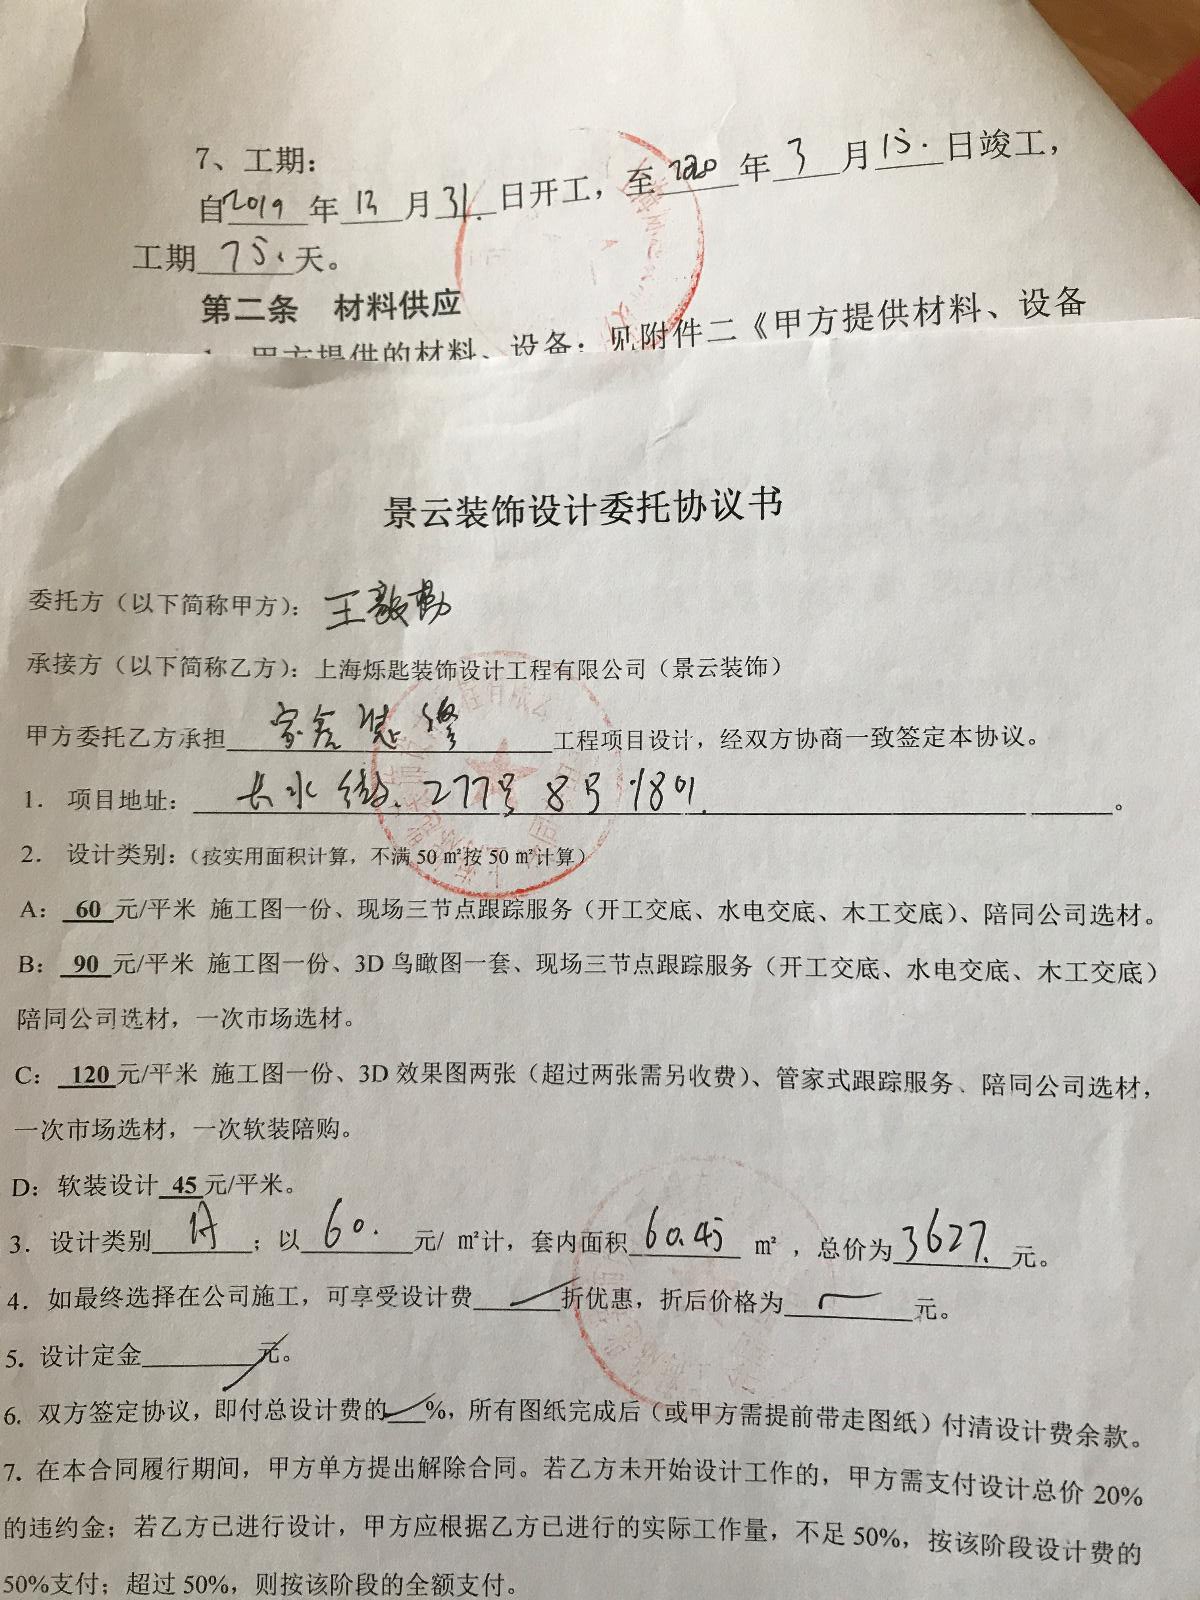 7、工期：
自2019年12月31.日开工，至2020年3月15.日竣工，
工期75.天。
第二条 材料供应
1、甲方提供的材料、设备：见附件二《甲方提供材料、设备
景云装饰设计委托协议书
委托方（以下简称甲方）：王毅勤
承接方（以下简称乙方）：上海烁匙装饰设计工程有限公司（景云装饰）
甲方委托乙方承担家舍装修工程项目设计，经双方协商一致签定本协议。
1. 项目地址：长水街.277号8号1801.。
2. 设计类别：（按实用面积计算，不满50㎡按50㎡计算）
A：60元/平米 施工图一份、现场三节点跟踪服务（开工交底、水电交底、木工交底）、陪同公司选材。
B：90元/平米 施工图一份、3D鸟瞰图一套、现场三节点跟踪服务（开工交底、水电交底、木工交底）
陪同公司选材，一次市场选材。
C：120元/平米 施工图一份、3D效果图两张（超过两张需另收费）、管家式跟踪服务、陪同公司选材，
一次市场选材，一次软装陪购。
D：软装设计45元/平米。
3. 设计类别A；以60.元/㎡计，套内面积60.45㎡，总价为3627.元。
4. 如最终选择在公司施工，可享受设计费___折优惠，折后价格为___元。
5. 设计定金______元。
6. 双方签定协议，即付总设计费的__%，所有图纸完成后（或甲方需提前带走图纸）付清设计费余款。
7. 在本合同履行期间，甲方单方提出解除合同。若乙方未开始设计工作的，甲方需支付设计总价20%
的违约金；若乙方已进行设计，甲方应根据乙方已进行的实际工作量，不足50%，按该阶段设计费的
50%支付；超过50%，则按该阶段的全额支付。